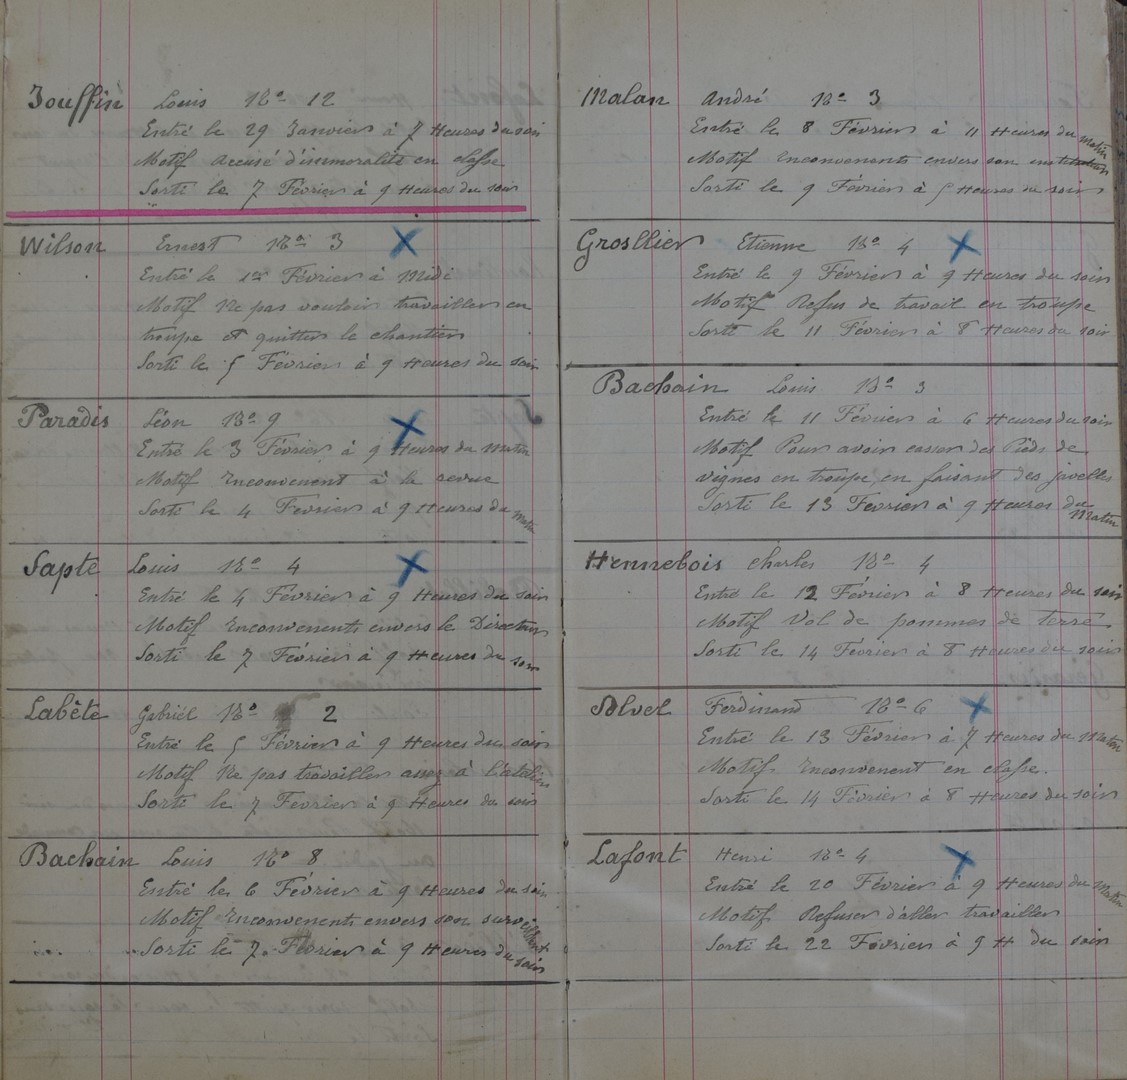 Jouffin Louis No 12
Entré le 29 Janvier à 7 Heures du soir
Motif accusé d'immoralité en classe
Sorti le 7 Février à 9 Heures du soir
Wilson Ernest No 3
Entré le 1er Février à Midi
Motif Ne pas vouloir travailler en
troupe et quitter le chantier
Sorti le 5 Février à 9 Heures du soir
Paradis Léon No 9
Entré le 3 Février à 9 Heures du matin
Motif Inconvenent à la revue
Sorti le 4 Février à 9 Heures du matin
Sapte Louis No 4
Entré le 4 Février à 9 Heures du soir
Motif Inconvenents envers le Directeur
Sorti le 7 Février à 9 Heures du soir
Labête Gabriél No 2
Entré le 5 Février à 9 Heures du soir
Motif Ne pas travailler assez à l'atelier
Sorti le 7 Février à 9 Heures du soir
Bachain Louis No 8
Entré le 6 Février à 9 Heures du soir
Motif Inconvenents envers son surveillant
Sorti le 7 Février à 9 Heures du soir
Malan André No 3
Entré le 8 Février à 11 Heures du matin
Motif Inconvenents envers son
Sorti le 9 Février à 5 Heures du soir
Grosllier Etienne No 4
Entré le 9 Février à 9 Heures du soir
Motif Refus de travail en troupe
Sorti le 11 Février à 8 Heures du soir
Bachain Louis No 3
Entré le 11 Février à 6 Heures du soir
Motif Pour avoir casser des Pieds de
vignes en troupe en faisant des javelles
Sorti le 13 Février à 9 Heures du Matin
Hennebois Charles No 4
Entré le 12 Février à 8 Heures du soir
Motif Vol de pommes de terre
Sorti le 14 Février à 8 Heures du soir
Solvel Ferdinand No 6
Entré le 13 Février à 7 Heures du Matin
Motif Inconvenent en classe.
Sorti le 14 Février à 8 Heures du soir
Lafont Henri No 4
Entré le 20 Février à 9 Heures du Matin
Motif Refuser d'aller travailler
Sorti le 22 Février à 9 H du soir